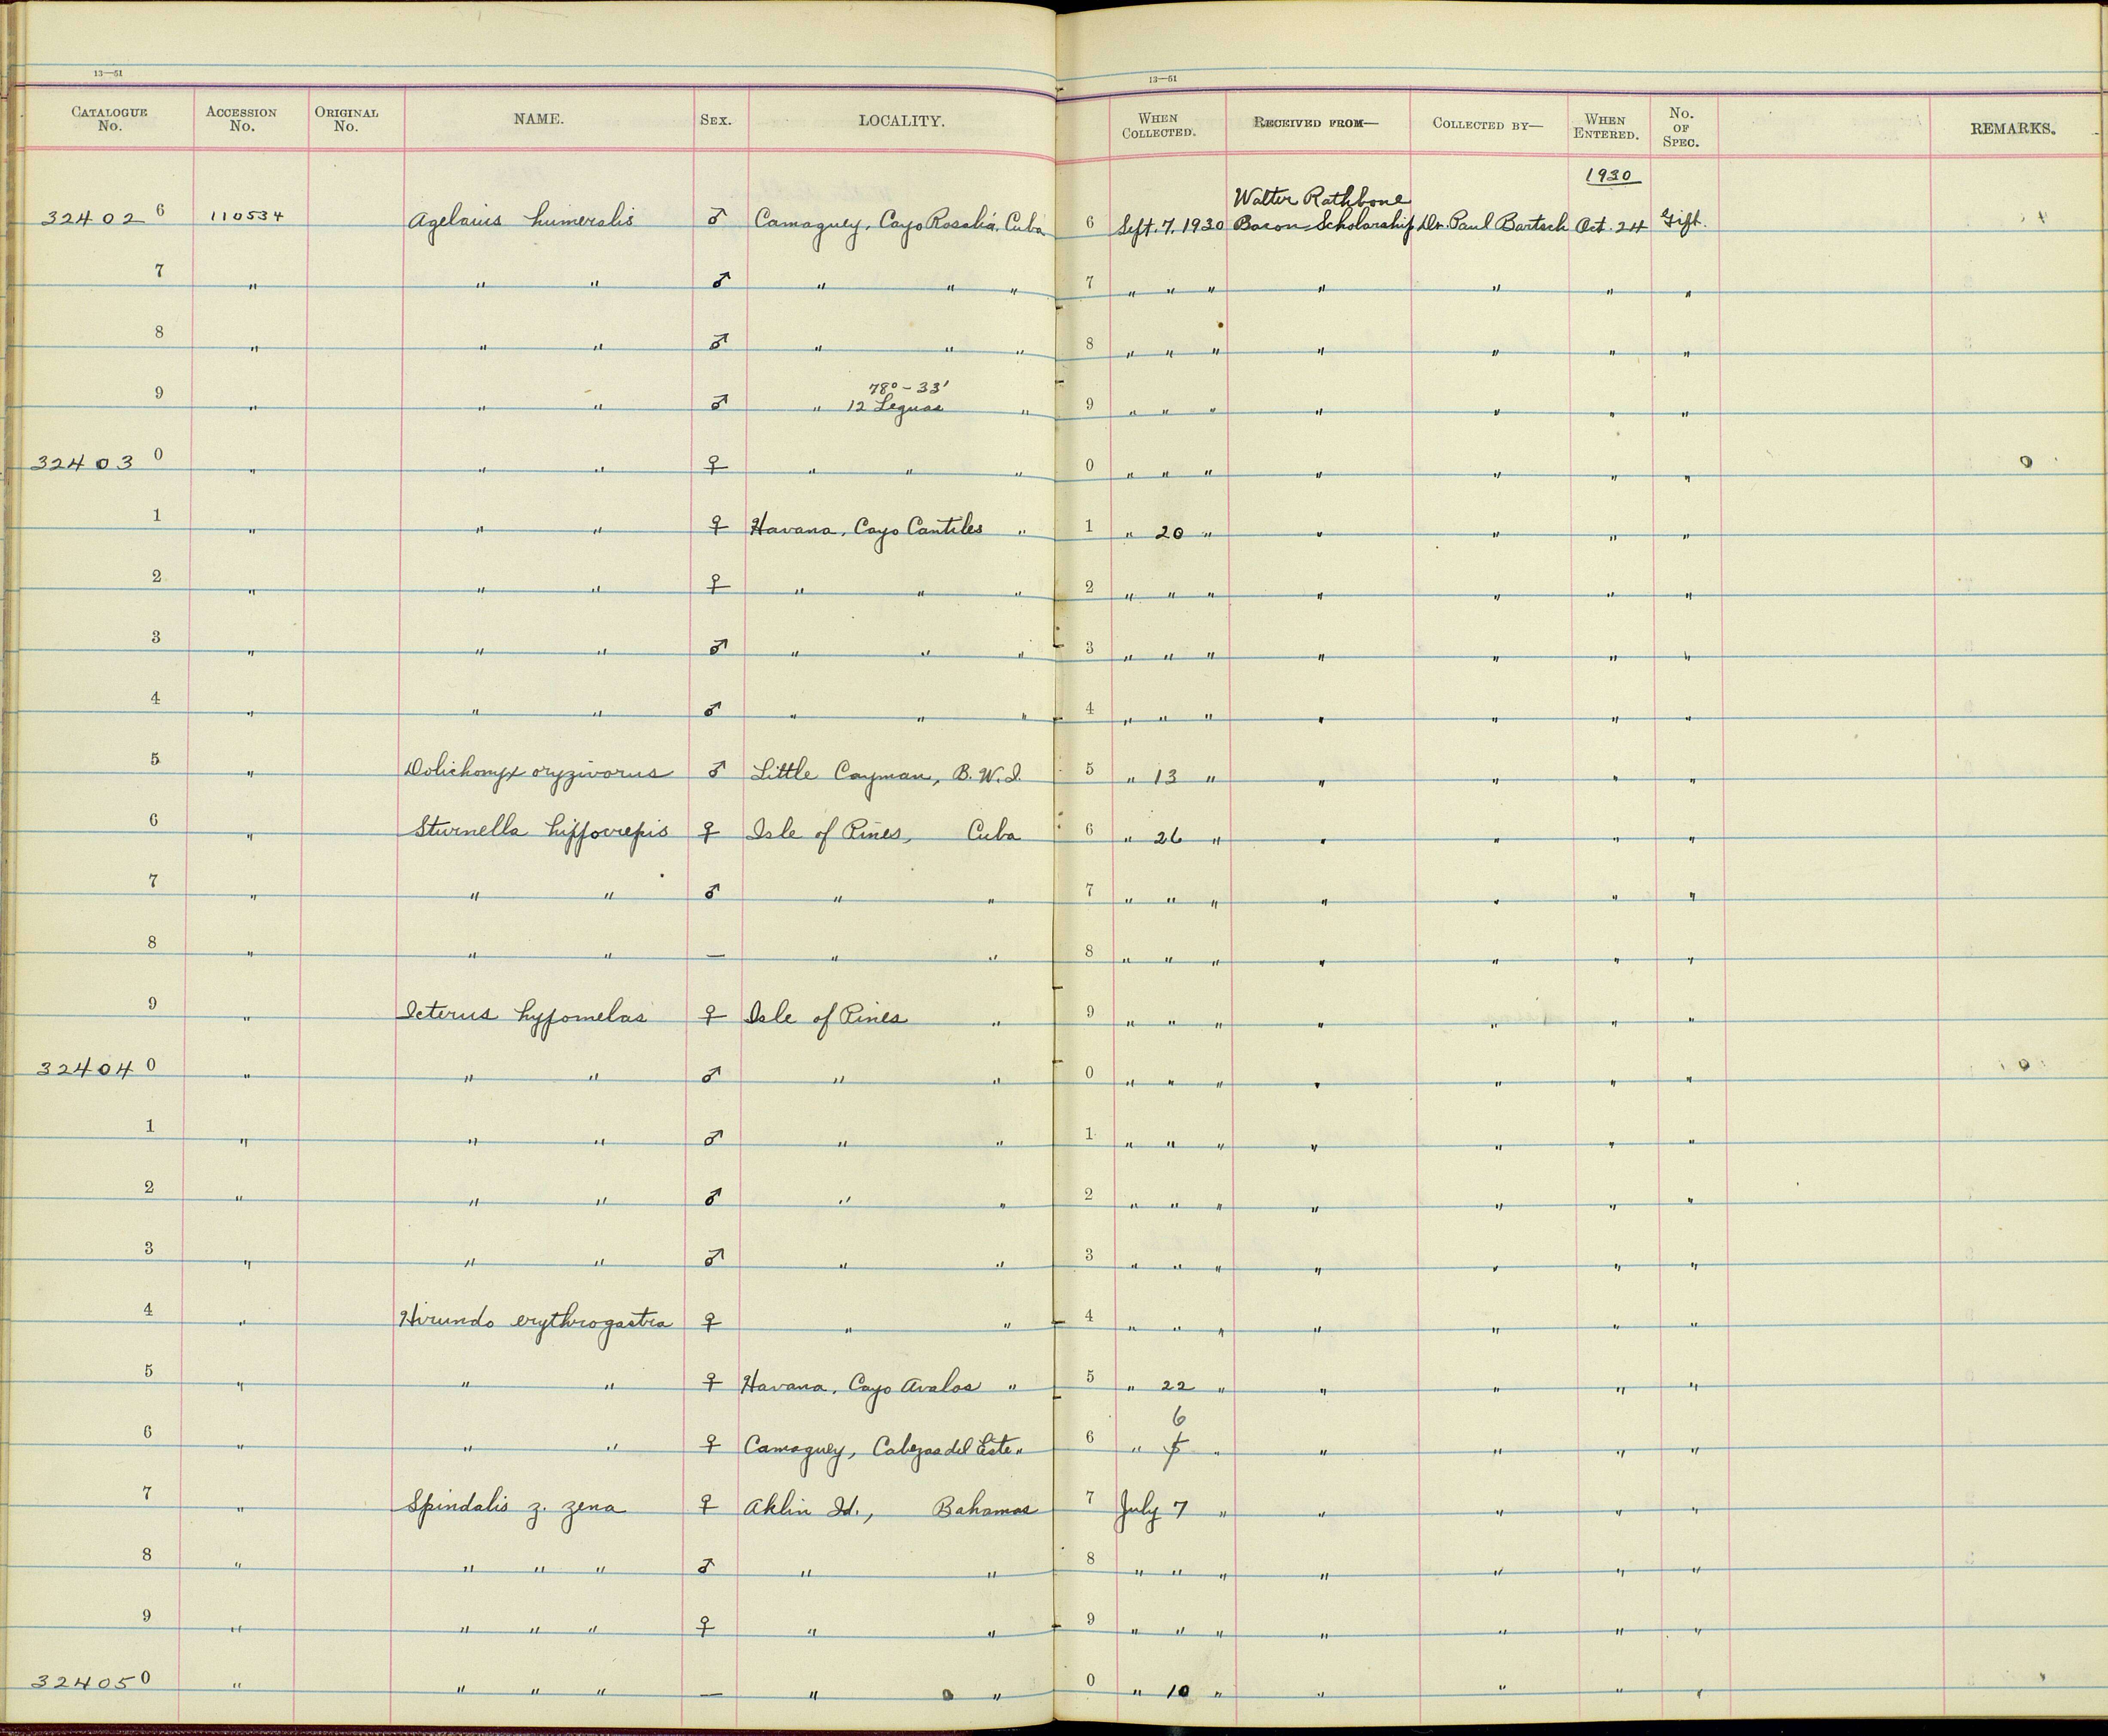 13—51
13—51
CATALOGUE No. ACCESSION No. ORIGINAL No. NAME. SEX. LOCALITY. WHEN COLLECTED. RECEIVED FROM— COLLECTED BY— WHEN ENTERED. No. OF SPEC. REMARKS.
1930
Walter Rathbone
32402 6 110534 Agelaius humeralis ♂ Camaguey, Cayo Rosalia, Cuba 6 Sept. 7, 1930 Bacon Scholarship Dr. Paul Bartsch Oct. 24 Gift.
7 " " " ♂ " " " 7 " " " " " " "
8 " " " ♂ " " " 8 " " " " " " "
78° – 33'
9 " " " ♂ " 12 Leguas " 9 " " " " " " "
32403 0 " " " ♀ " " " 0 " " " " " " "
1 " " " ♀ Havana, Cayo Cantiles " 1 " 20 " " " " "
2 " " " ♀ " " " 2 " " " " " " "
3 " " " ♂ " " " 3 " " " " " " "
4 " " " ♂ " " " 4 " " " " " " "
5 " Dolichonyx oryzivorus ♂ Little Cayman, B.W.I. 5 " 13 " " " " "
6 " Sturnella hippocrepis ♀ Isle of Pines, Cuba 6 " 26 " " " " "
7 " " " ♂ " " 7 " " " " " " "
8 " " " — " " 8 " " " " " " "
9 " Icterus hypomelas ♀ Isle of Pines " 9 " " " " " " "
32404 0 " " " ♂ " " 0 " " " " " " "
1 " " " ♂ " " 1 " " " " " " "
2 " " " ♂ " " 2 " " " " " " "
3 " " " ♂ " " 3 " " " " " " "
4 " Hirundo erythrogastra ♀ " " 4 " " " " " " "
5 " " " ♀ Havana, Cayo Avalos " 5 " 22 " " " " "
6 " " " ♀ Camaguey, Cabezas del Este " 6 " 6 " " " " "
7 " Spindalis z. zena ♀ Aklin Id., Bahamas 7 July 7 " " " " "
8 " " " " ♂ " " 8 " " " " " " "
9 " " " " ♀ " " 9 " " " " " " "
32405 0 " " " " — " " 0 " 10 " " " " "